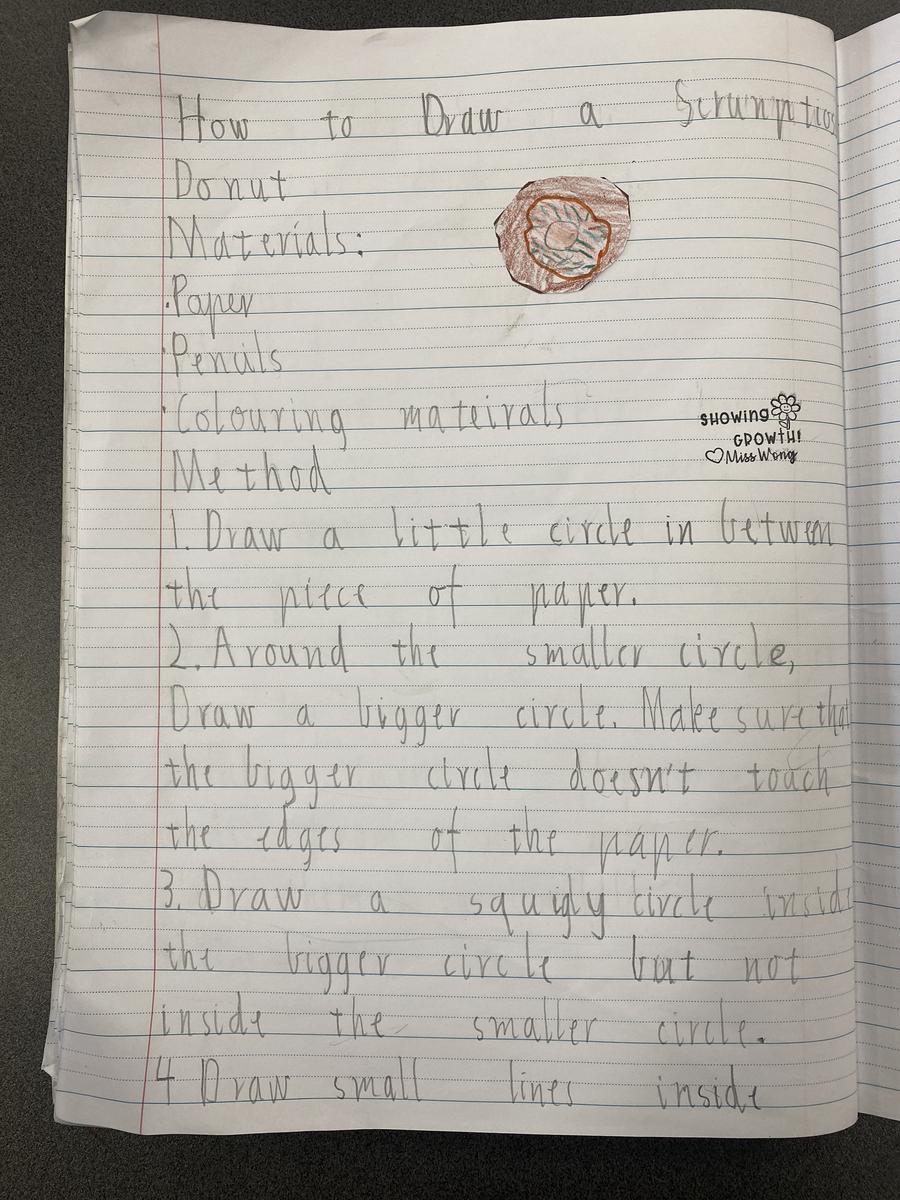 How to Draw a Scrumptios
Donut
Materials:
·Paper
·Pencils
·Colouring mateirals
SHOWING
GROWTH!
♡Miss Wong
Method
1. Draw a little circle in between
the piece of paper.
2. Around the smaller circle,
Draw a bigger circle. Make sure that
the bigger circle doesn't touch
the edges of the paper.
3. Draw a squigly circle inside
the bigger circle but not
inside the smaller circle.
4 Draw small lines inside